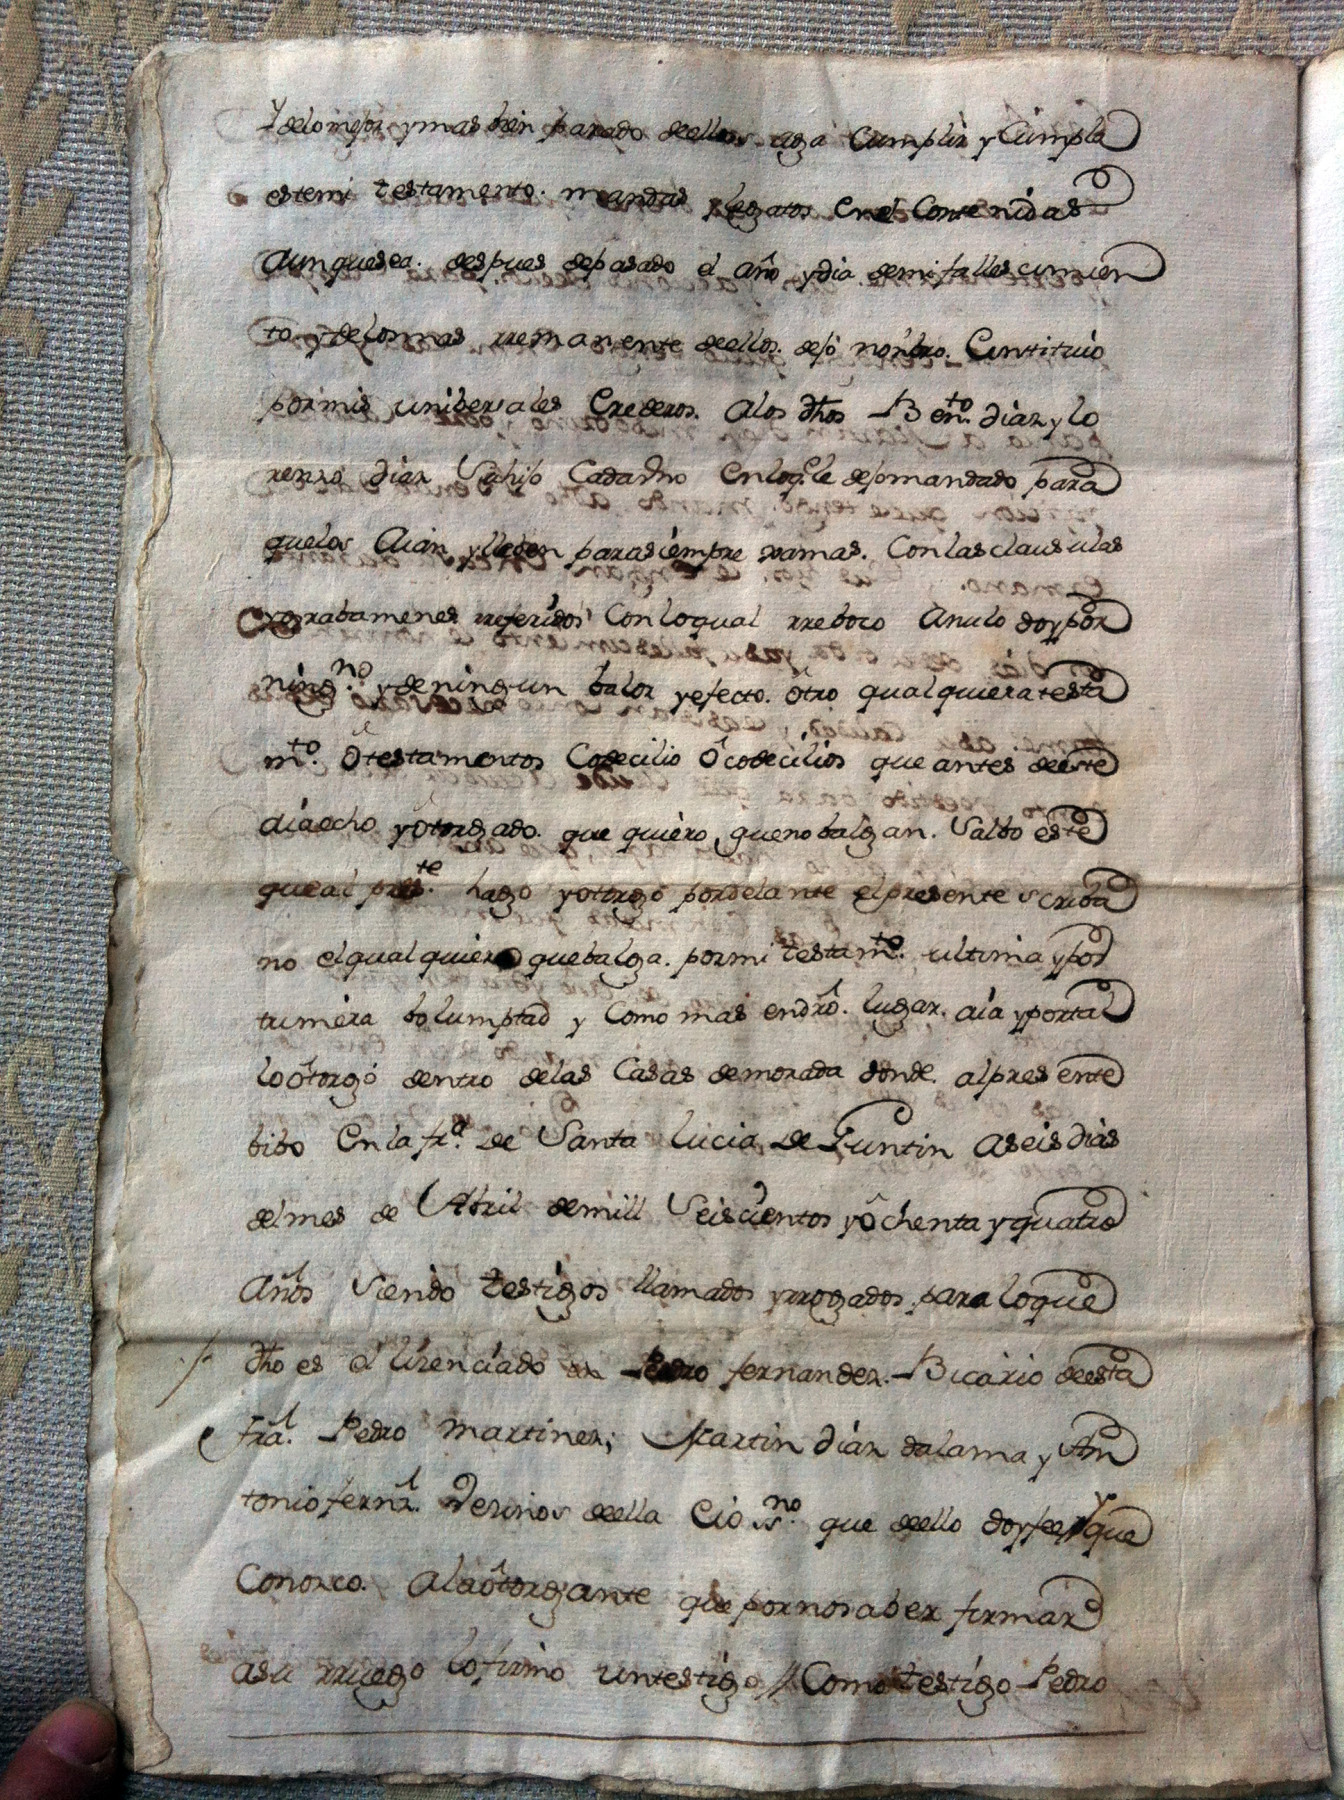 Y delo mejor y mas bien parado de ellos aga Cumplir y Cumpla
este mi testamento. mandas y legatos en el Contenidas
Aunque sea. despues de pasado el año y dia de mi fallescimien
to y de lo mas rremanente de ellos. dejo nonbro. Constituio
por mis unibersales Erederos. A los dhos Bento. diaz y lo
renzo diaz Su hijo Cada Vno en loq.e le dejo mandado para
que los Aian y lleben para siempre xamas. Con las clausulas
y grabamenes rreferidos Con lo qual rreboco Anulo doy por
ning.no y de ningun balor y efecto. otro qualquiera testa
m.to o testamentos Codecilio o codecilios que antes de este
dia echo y otorgado. que quiero que no balgan. Salbo este
que al pres.te hago y otorgo por delante el presente scriba
no el qual quiero que balga. por mi testam.to ultima y pos
trimera bolumptad y Como mas en dro. lugar. aia y por tal
lo otorgo dentro de las Casas de morada donde. al presente
bibo En la fra. de Santa lucia de Guntin a seis dias
del mes de Abril de mill Seiscientos y ochenta y quatro
Años Siendo testigos llamados y rrogados para lo que
dho es el lizenciado Pedro fernandez. Bicario de esta
fra. Pedro Martinez; Martin diaz dalama y An
tonio fernz. Vezinos de ella E io ss.no que de ello doy fee y que
Conozco. Al a otorgante que por no saber firmar
a su rruego lo firmo un testigo // Como testigo Pedro